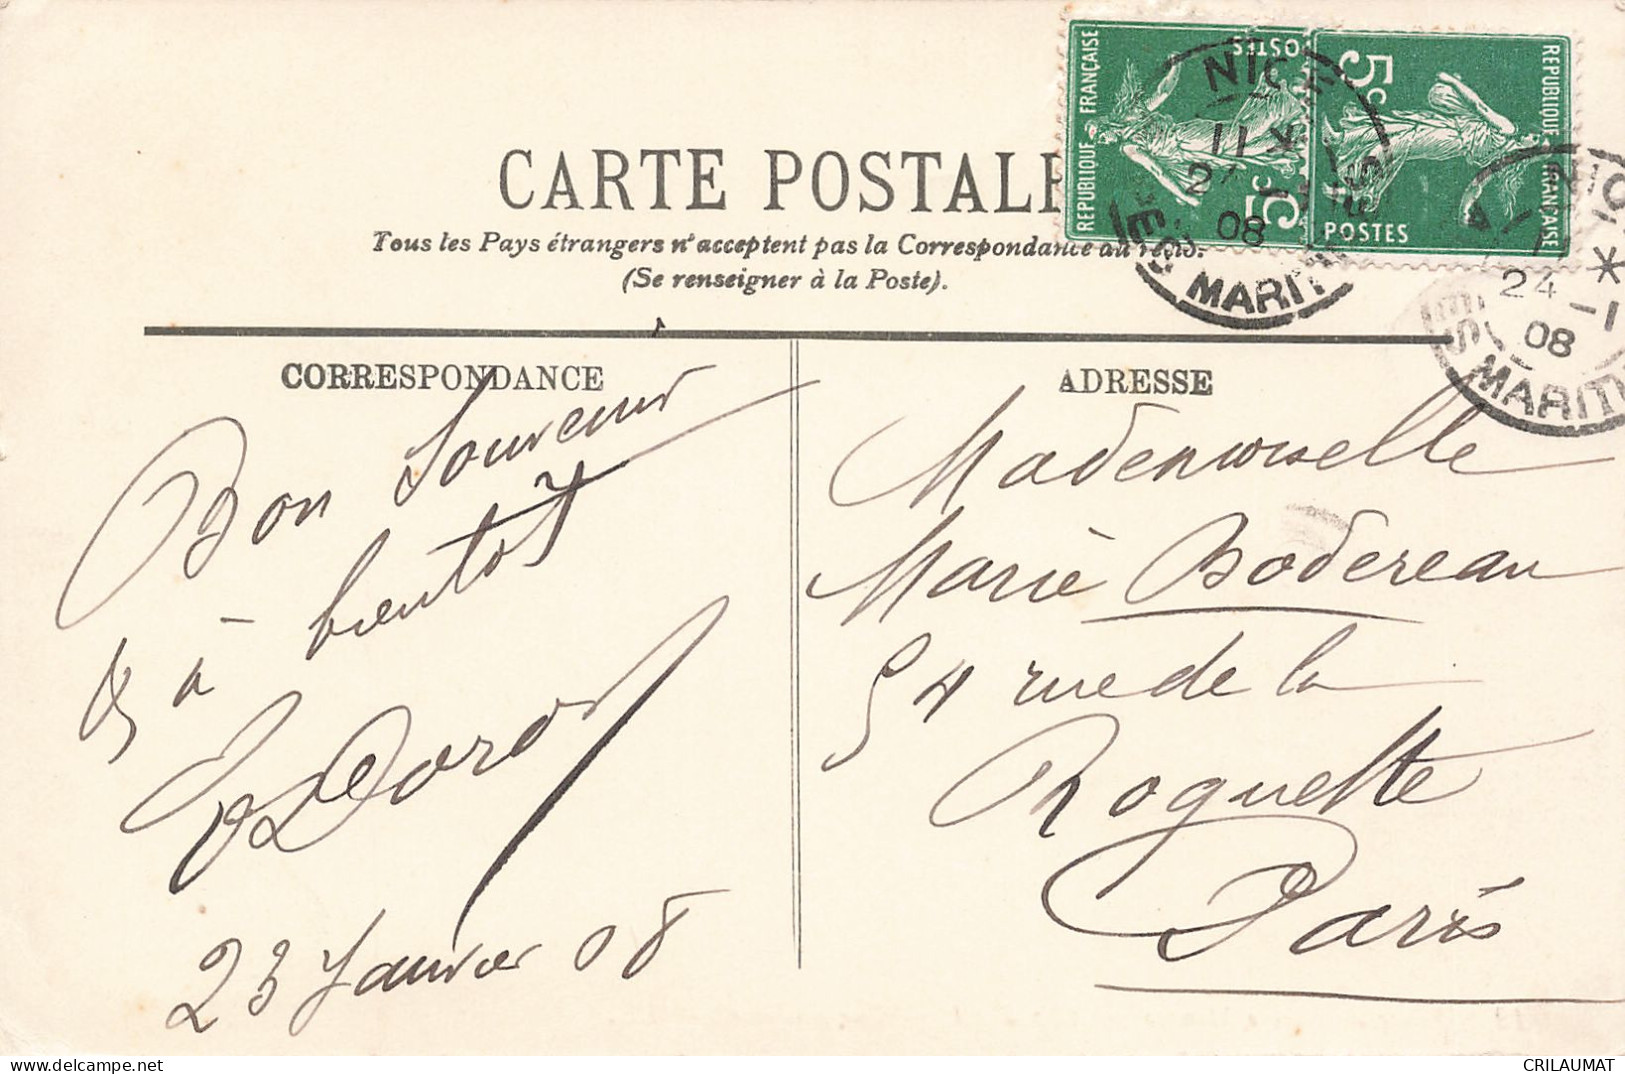 CARTE POSTALE
Tous les Pays étrangers n'acceptent pas la Correspondance au recto.
(Se renseigner à la Poste).
REPUBLIQUE FRANÇAISE
POSTES
5c
REPUBLIQUE FRANÇAISE
POSTES
5c
NICE
11
08
MARIT
NIC
24 - 1
08
MARITI
CORRESPONDANCE
Bon Souvenir
& à bientot
23 Janvier 08
ADRESSE
Mademoiselle
Marie Bodereau
54 rue de la
Roquette
Paris
CRILAUMAT